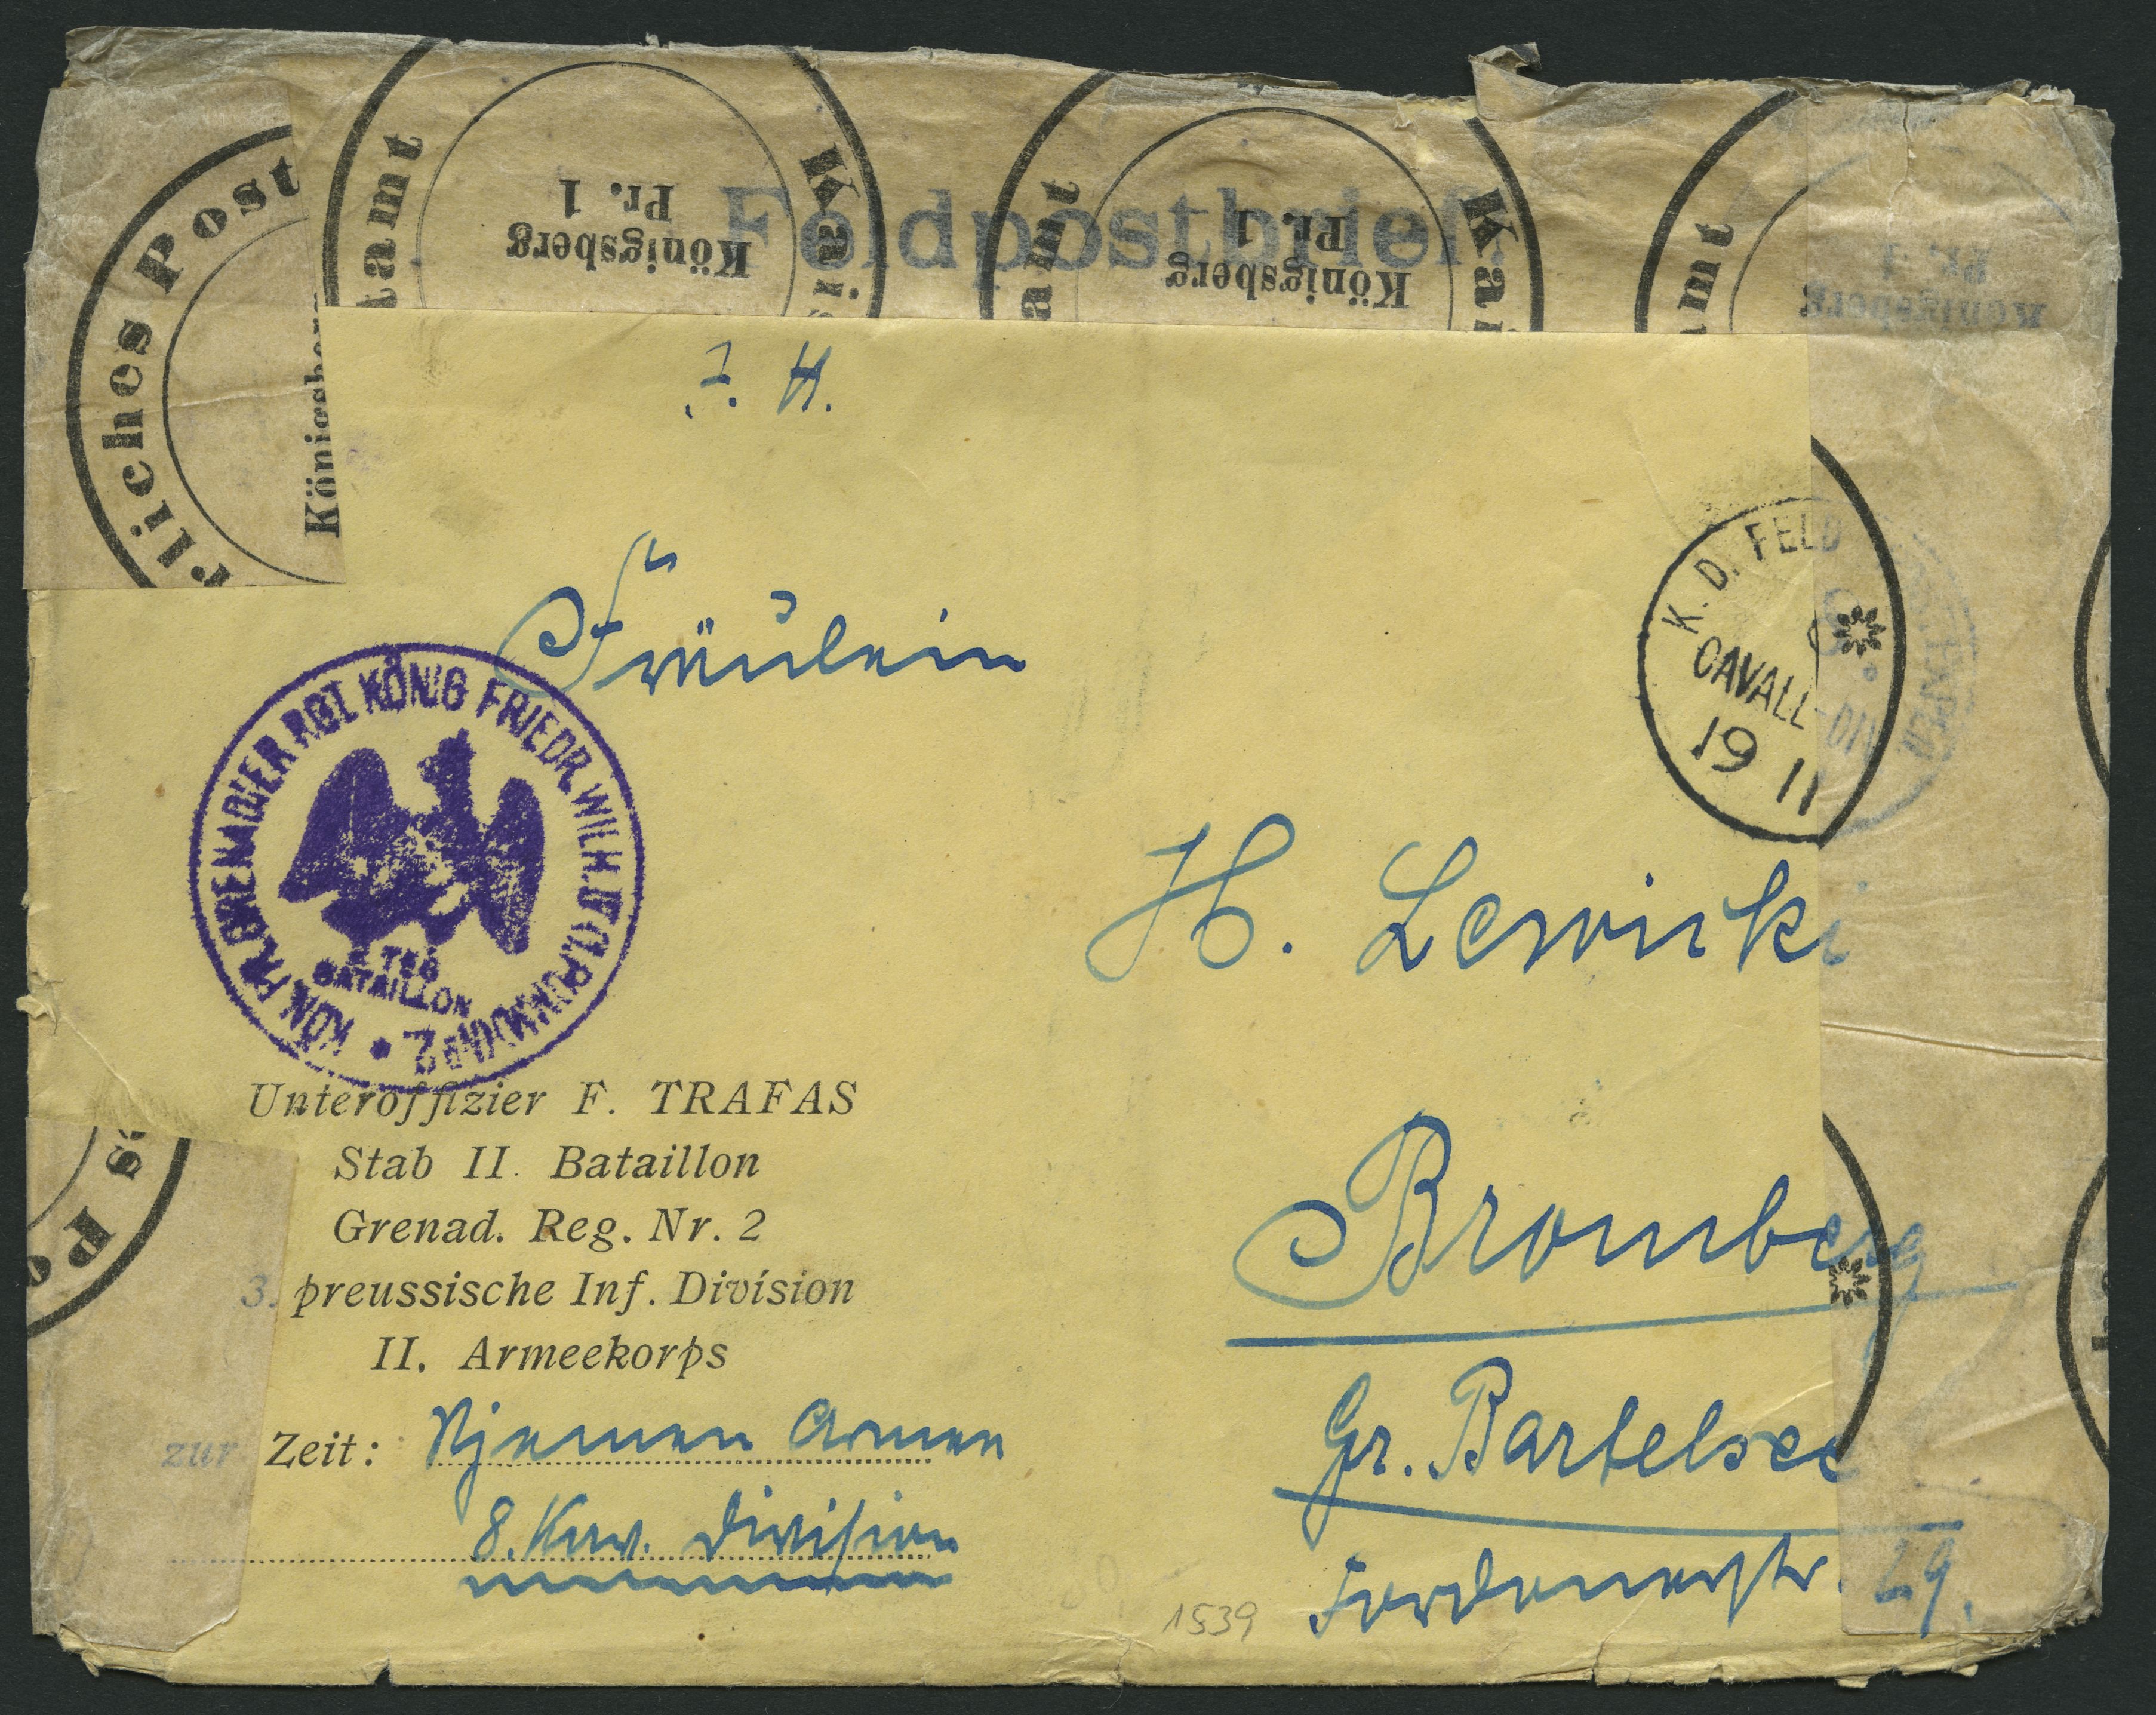 Feldpostbrief.
liches Post
Königsberg
tamt
Königsberg
Pr. 1
Kais
amt
Königsberg
Pr. 1
Kai
amt
Königsberg
Pr. 1
Fräulein
K. D. FELD
CAVALL-DIV
19 11
H. Lewicki
KÖN. PR. GRENADIER RGT. KÖNIG FRIEDR. WILH. IV
2
BATAILLON
Unteroffizier F. TRAFAS
Stab II. Bataillon
Grenad. Reg. Nr. 2
3. preussische Inf. Division
II. Armeekorps
zur Zeit: Njemen Armee
8. Kav. Division
s Po
Bromberg
Gr. Bartelsee
Fordonerstr. 29.
1539